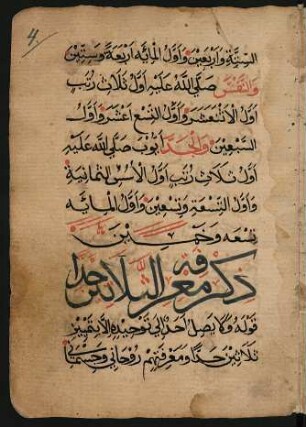 4
الستة واربعين واول المايه اربعة وستين
والنفس صلى الله عليه اول ثلاث رتب
اول الاثنعشر واول التسع اعشر واول
السبعين والجد ايوب صلى الله عليه
اول ثلاث رتب اول الاسس الثمانية
واول التسعة وتسعين واول المايه
تسعه وخمسين
ذكر معرفة الثلاثين حدا
قوله ولا يصل احد الى توحيده الا بتمييز
ثلاثين حدا ومعرفتهم روحاني وجسماني